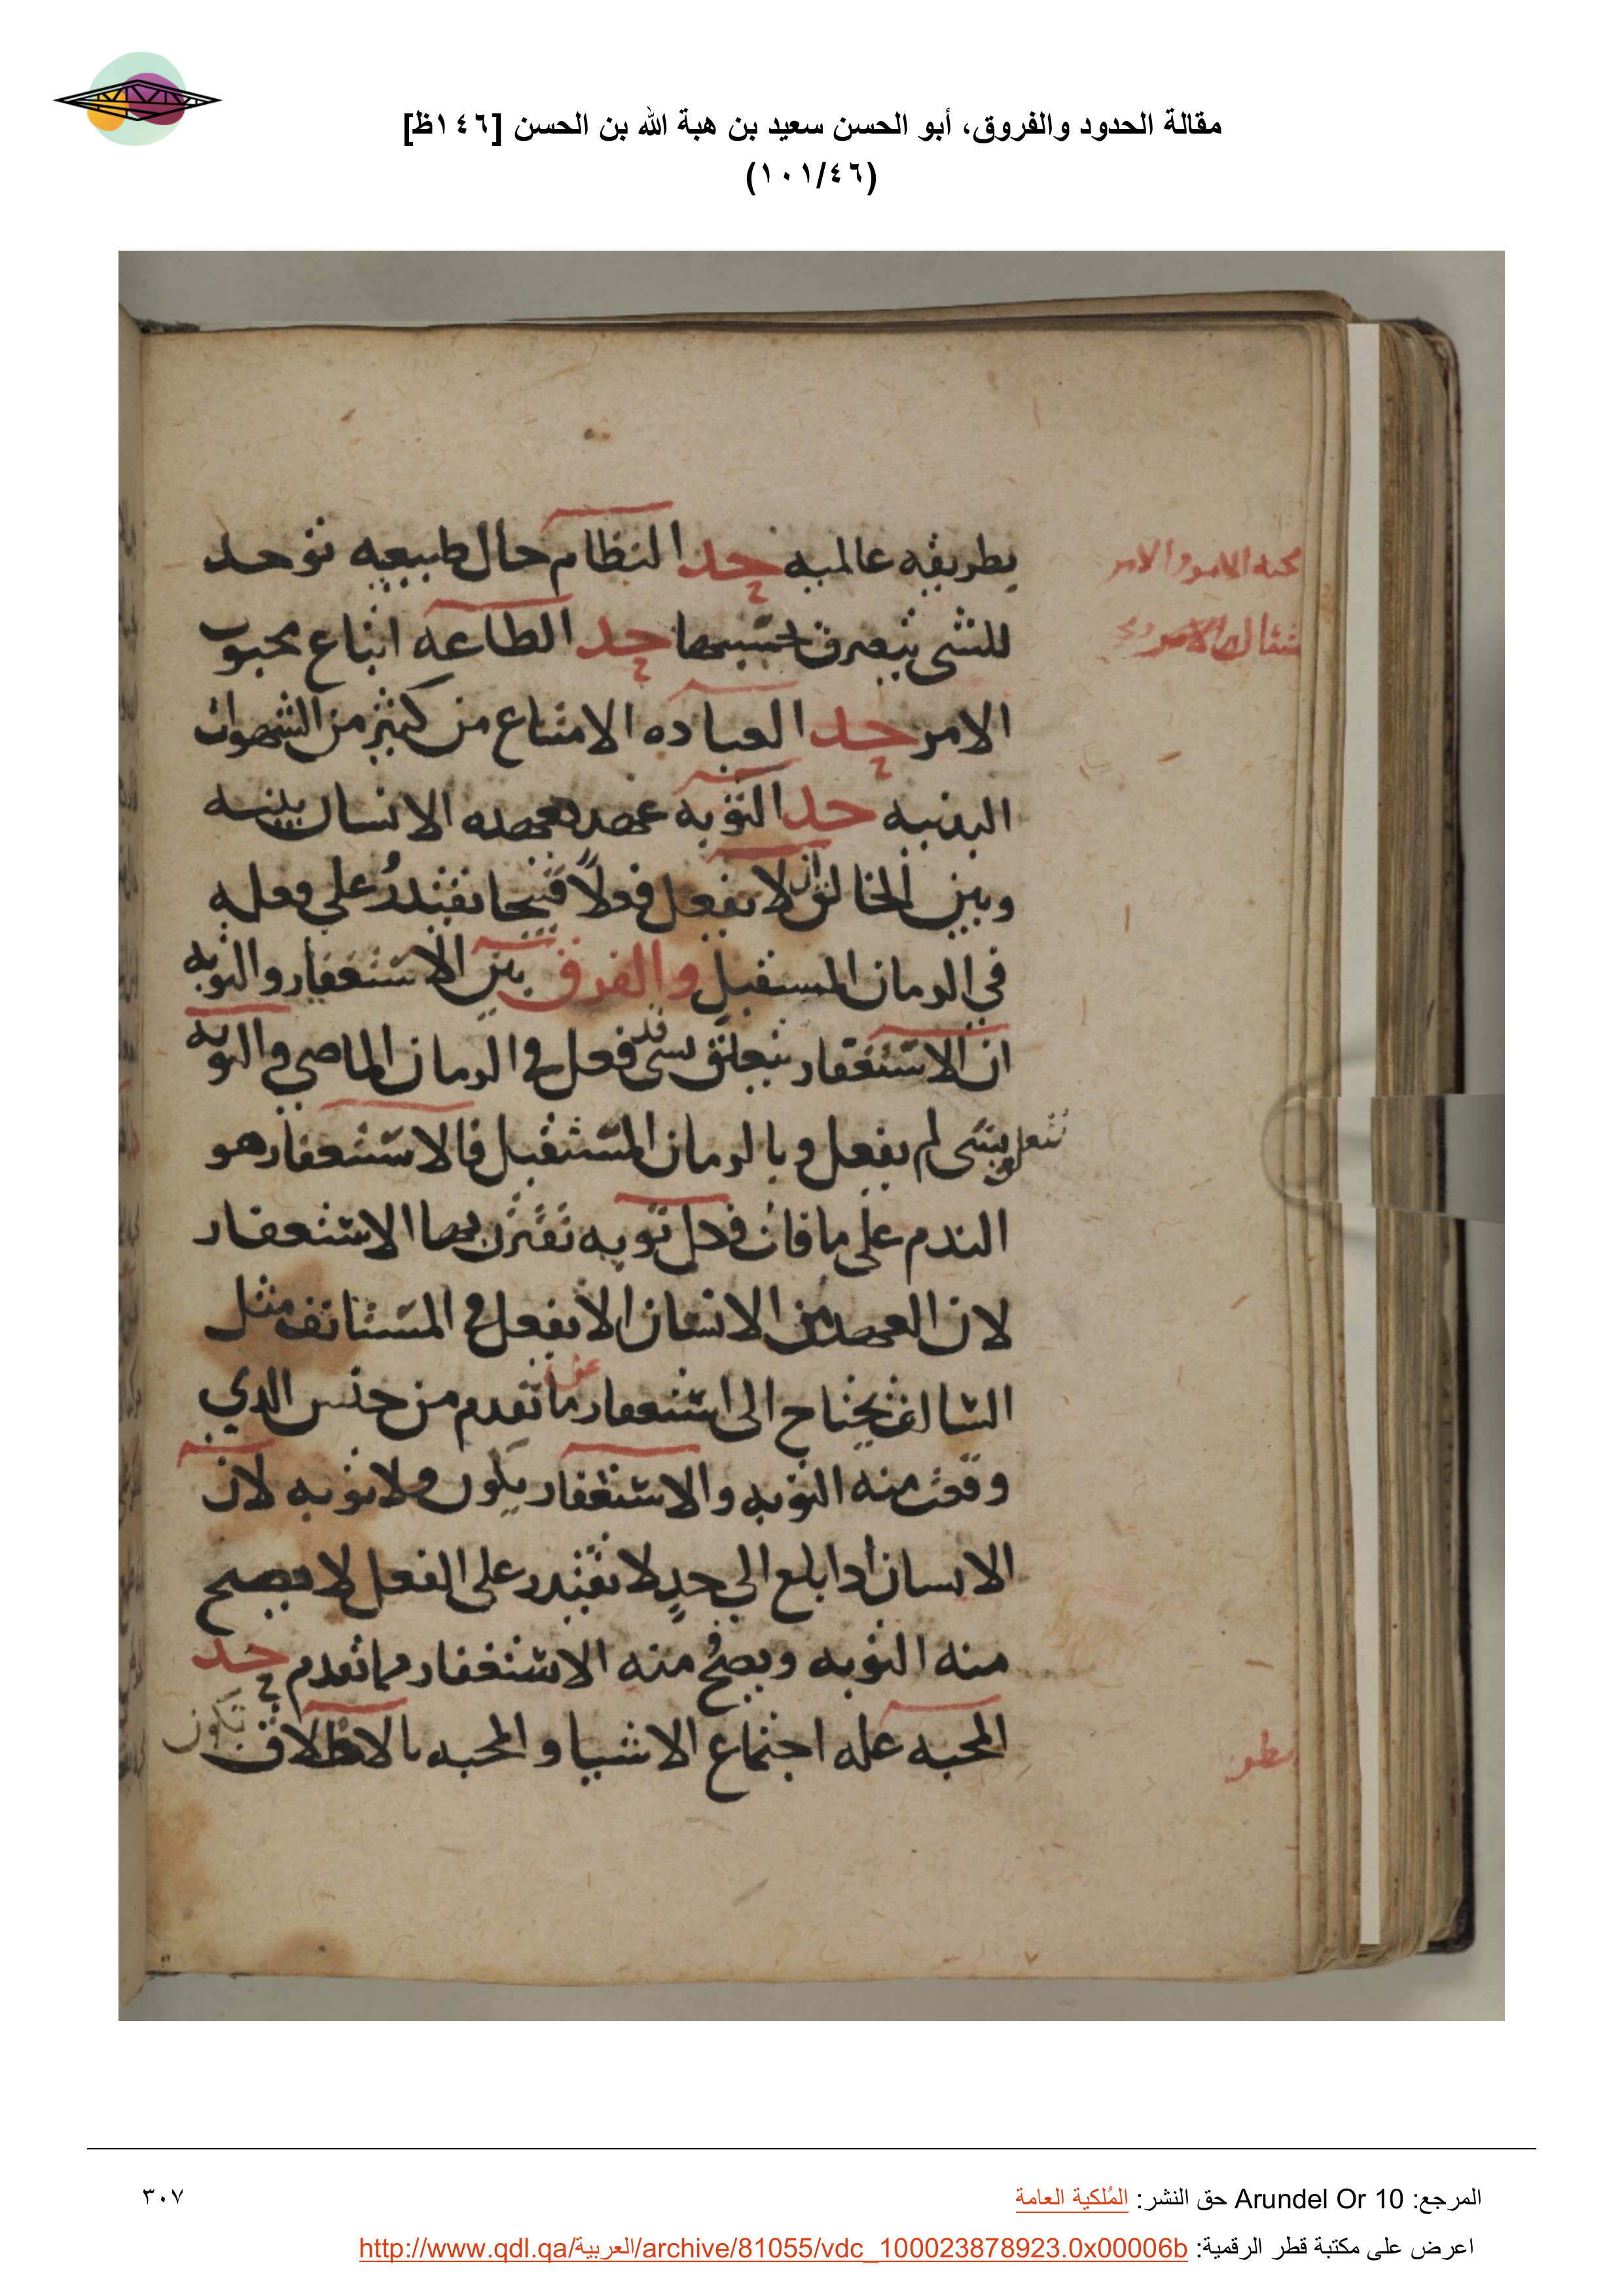 مقالة الحدود والفروق، أبو الحسن سعيد بن هبة الله بن الحسن [١٤٦ظ]
(١٠١/٤٦)
بطريقه عالميه حد النظام حال طبيعيه توحد
للشي يتصرف بحسبها حد الطاعه اتباع محبوب
الامر حد العباده الامتناع من كثير من الشهوات
البدنيه حد التوبه عهد يعهده الانسان بينه
وبين الخالق ان لا يفعل فعلاً قبيحا يقتدرُ على فعله
في الزمان المستقبل والفرق بين الاستغفار والتوبه
ان الاستغفار يتعلق بشي قد فعل في الزمان الماضي والتوبه
تتعلق بشي لم يفعل وبالزمان المستقبل فالاستغفار هو
الندم على ما فات فكل توبه تقترن بها الاستغفار
لان العهد من الانسان الا يفعل في المستانف مثل
السالف يحتاج الى استغفار عن ما تقدم من جنس الدي
وقعت منه التوبه والاستغفار يكون ولا توبه لان
الانسان ادا بلغ الى حدٍ لا يقتدر على الفعل لا يصح
منه التوبه ويصح منه الاستغفار مما تقدم حد
المحبه عله اجتماع الاشيا والمحبه بالاطلاق تكون
المرجع: Arundel Or 10 حق النشر: المُلكية العامة
٣٠٧
اعرض على مكتبة قطر الرقمية: http://www.qdl.qa/العربية/archive/81055/vdc_100023878923.0x00006b